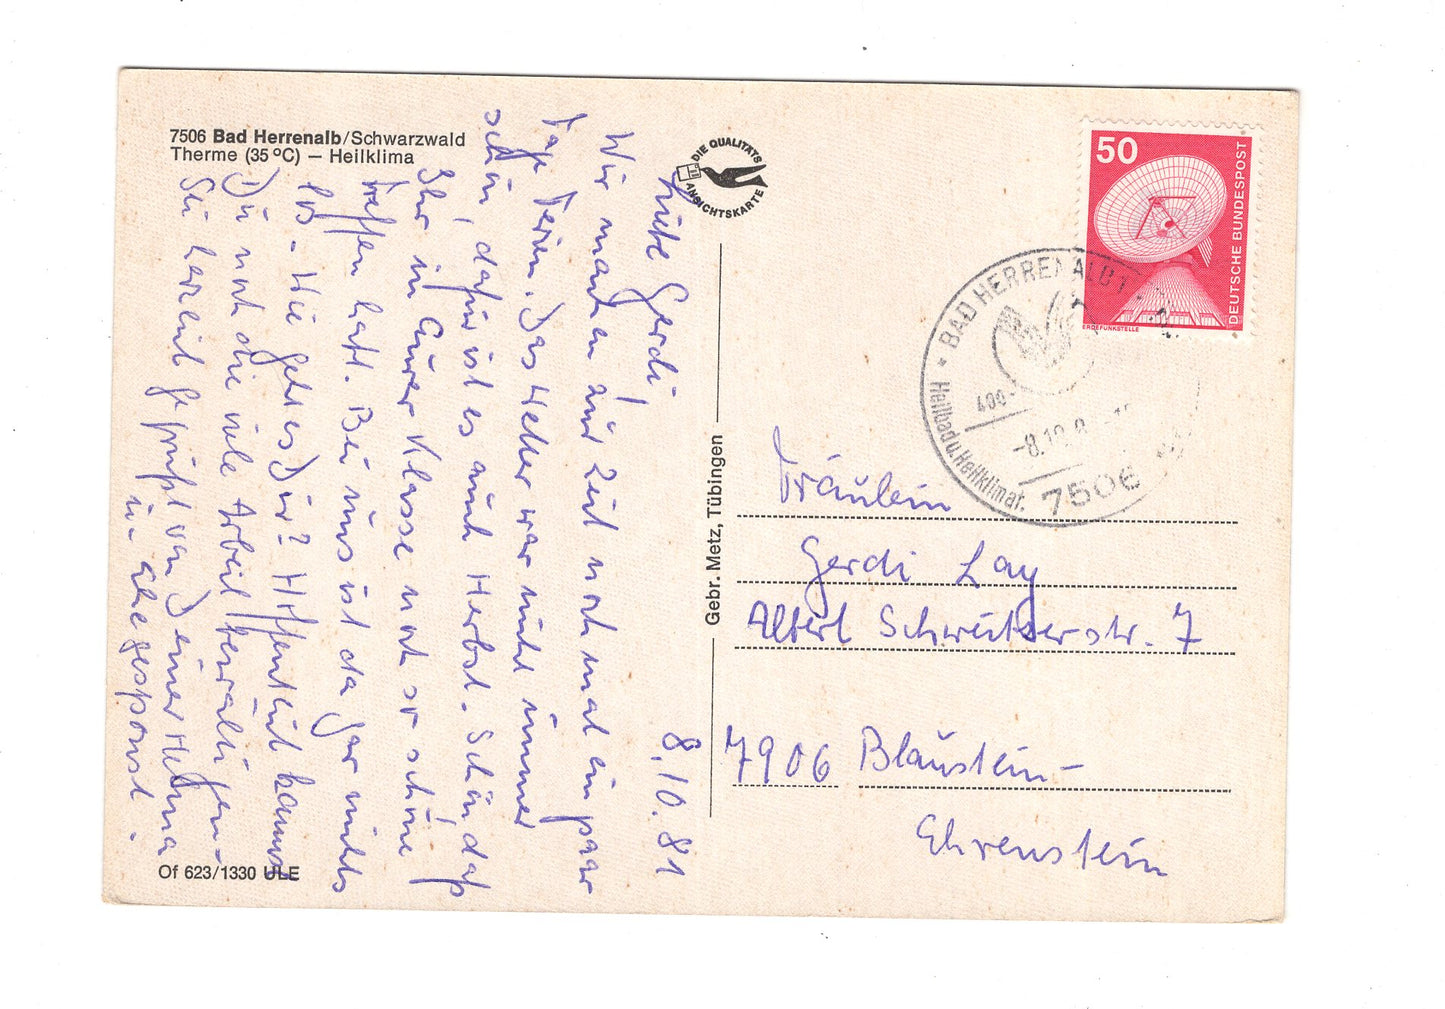 7506 Bad Herrenalb/Schwarzwald
Therme (35 °C) – Heilklima
DIE QUALITÄTS
ANSICHTSKARTE
8.10.81
Liebe Gerdi,
Wir machen zur Zeit noch mal ein paar
Tage Ferien. Das Wetter war nicht immer
schön, dafür ist es auch Herbst. Schön, daß
Ihr in Eurer Klasse noch so schöne
Treffen habt. Bei uns ist da gar nichts
los - Wie geht es Dir? Hoffentlich kannst
Du noch die viele Arbeit bewältigen -
Sei herzlich gegrüßt von Deiner Helma
Gebr. Metz, Tübingen
Of 623/1330 ULE
50
DEUTSCHE BUNDESPOST
ERDEFUNKSTELLE
* BAD HERRENALB 1
Heilbad u. Heilklimat.
-8.10.8
7506
Fräulein
Gerdi Lay
Albert Schweitzerstr. 7
7906 Blaustein-
Ehrenstein